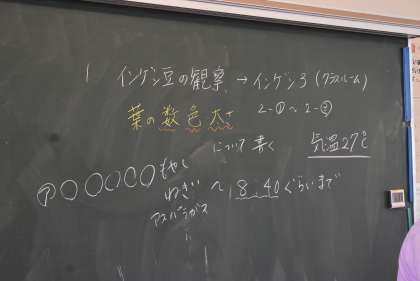 1 インゲン豆の観察 → インゲン3 (クラスルーム)
葉の数色大きさ 2-①〜2-②
について書く 気温27℃
⑦〇〇〇〇〇もやし
ねぎ 〜 8:40ぐらいまで
アスパラガス